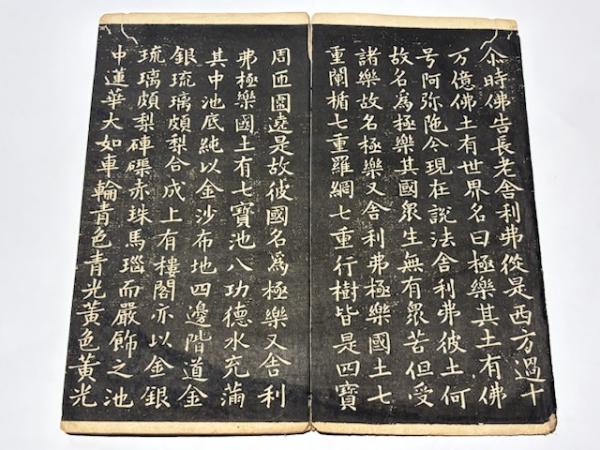 尒時佛告長老舍利弗從是西方過十
万億佛土有世界名曰極樂其土有佛
号阿弥陁今現在說法舍利弗彼土何
故名爲極樂其國衆生無有衆苦但受
諸樂故名極樂又舍利弗極樂國土七
重闌楯七重羅網七重行樹皆是四寶
周匝圍遶是故彼國名爲極樂又舍利
弗極樂國土有七寶池八功德水充蒲
其中池底純以金沙布地四邊階道金
銀琉璃頗梨合成上有樓閣亦以金銀
琉璃頗梨硨磲赤珠馬瑙而嚴飾之池
中蓮華大如車輪青色青光黃色黃光